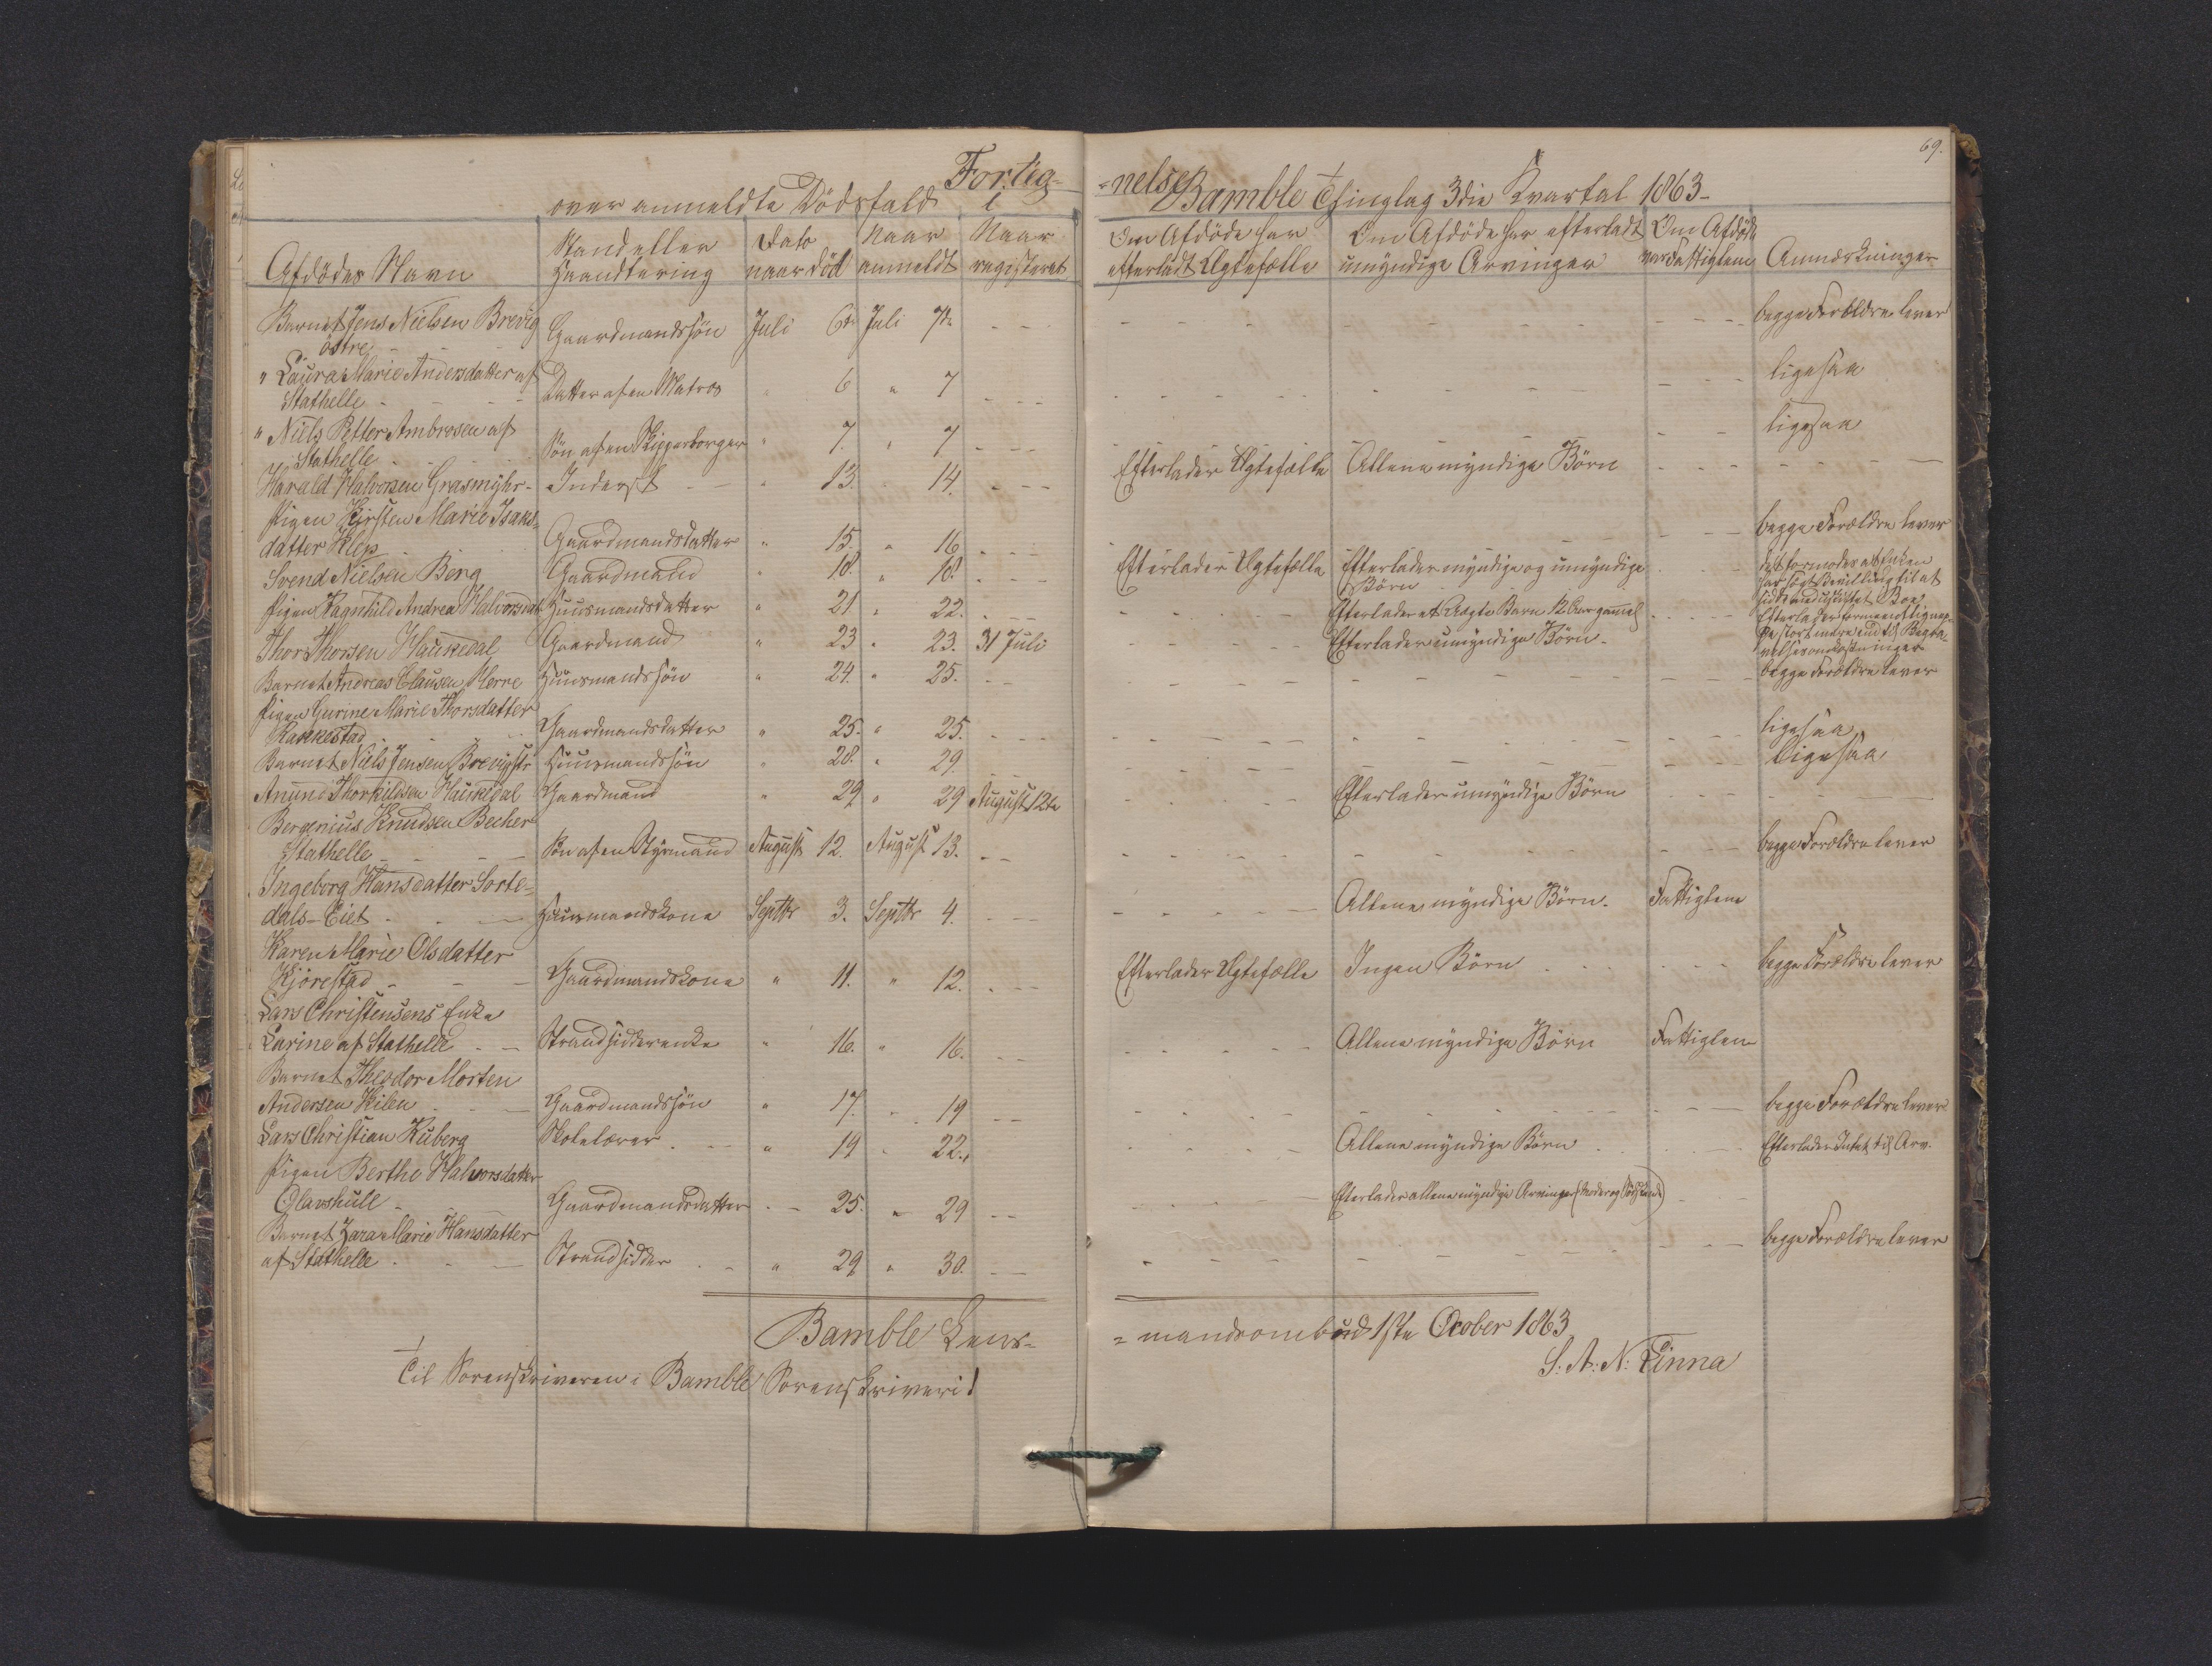 69.
Forteg- =nelse
over anmeldte Dödsfald i Bamble Thinglag 3die Kvartal 1863-
Afdödes Navn | Stand eller Haandtering | Dato naar död | Naar anmeldt | Naar registeret | Om Afdöde har efterladt Ægtefælle | Om Afdöde har efterladt umyndige Arvinger | Om Afdöde var Fattiglem | Anmærkninger
Barnet Jens Nielsen Brevig
östre | Gaardmandssön | Juli 6te | Juli 7de | begge Forældre lever
" Laura Marie Andersdatter af
Stathelle | Datter af en Matros | " 6 | " 7 | ligesaa
" Niels Petter Ambrosen af
Stathelle | Sön af en Skipperborger | " 7. | " 7 | ligesaa
Harald Halvorsen Grasmyhr- | Inderst | " 13. | " 14. | Efterlader Ægtefælle | Allene myndige Börn
Pigen Kirsten Marie Isaks-
datter Klep | Gaardmandsdatter | " 15. | " 16 | begge Forældre lever
Svend Nielsen Berg | Gaardmand | " 18. | " 18. | Efterlader Ægtefælle | Efterlader myndige og umyndige
Börn | det formodes at Enken
har søgt Bevilling til at
sidde med uskiftet Boe
Pigen Ragnhild Andrea Halvorsdat | Huusmandsdatter | " 21. | " 22. | Efterlader et Uægte Barn 12 Aar gammel | Efterlader formeentlig
stort mere end til Begra-
velsesomkostninger
Thor Thorsen Haukedal | Gaardmand | " 23 | " 23. | 31 Juli | Efterlader umyndige Börn.
Barnet Andreas Clausen Herre | Huusmandssön | " 24. | " 25. | begge Forældre lever
Pigen Gurine Marie Thorsdatter
Rakkestad | Gaardmandsdatter | " 25. | " 25. | ligesaa
Barnet Niels Jensen Brevigstr | Huusmandssön | " 28. | " 29. | ligesaa
Anund Thorkildsen Haukedal | Gaardmand | " 29 | " 29 | August 12te | Efterlader umyndige Börn
Bergenius Knudsen Becher
Stathelle | Sön af en Styrmand | August 12. | August 13. | begge Forældre lever
Ingeborg Hansdatter Sorte-
dals-Eiet | Huusmandskone | Septbr 3. | Septbr 4. | Allene myndige Börn. | Fattiglem
Karen Marie Olsdatter
Kjörestad | Gaardmandskone | " 11. | " 12. | Efterlader Ægtefælle | Ingen Börn | begge Forældre lever
Lars Christensens Enke
Larine af Stathelle | Strandsidderenke | " 16. | " 16. | Allene myndige Börn | Fattiglem
Barnet Theodor Morten
Andersen Kilen | Gaardmandssön | " 17. | " 19 | begge Forældre lever
Lars Christian Kuberg | Skolelærer | " 19 | " 22. | Allene myndige Börn | Efterlader Intet til Arv.
Pigen Berthe Halvorsdatter
Olavshull | Gaardmandsdatter | 25. | " 29 | Efterlader allene myndige Arvinger (Moder og Södskende)
Barnet Zara Marie Hansdatter
af Stathelle | Strandsidder | " 29 | " 30. | begge Forældre lever
Bamble Lens- =mandsombud 1ste Ocober 1863
S. A. N. Linna
Til Sorenskriveren i Bamble Sorenskriveri!